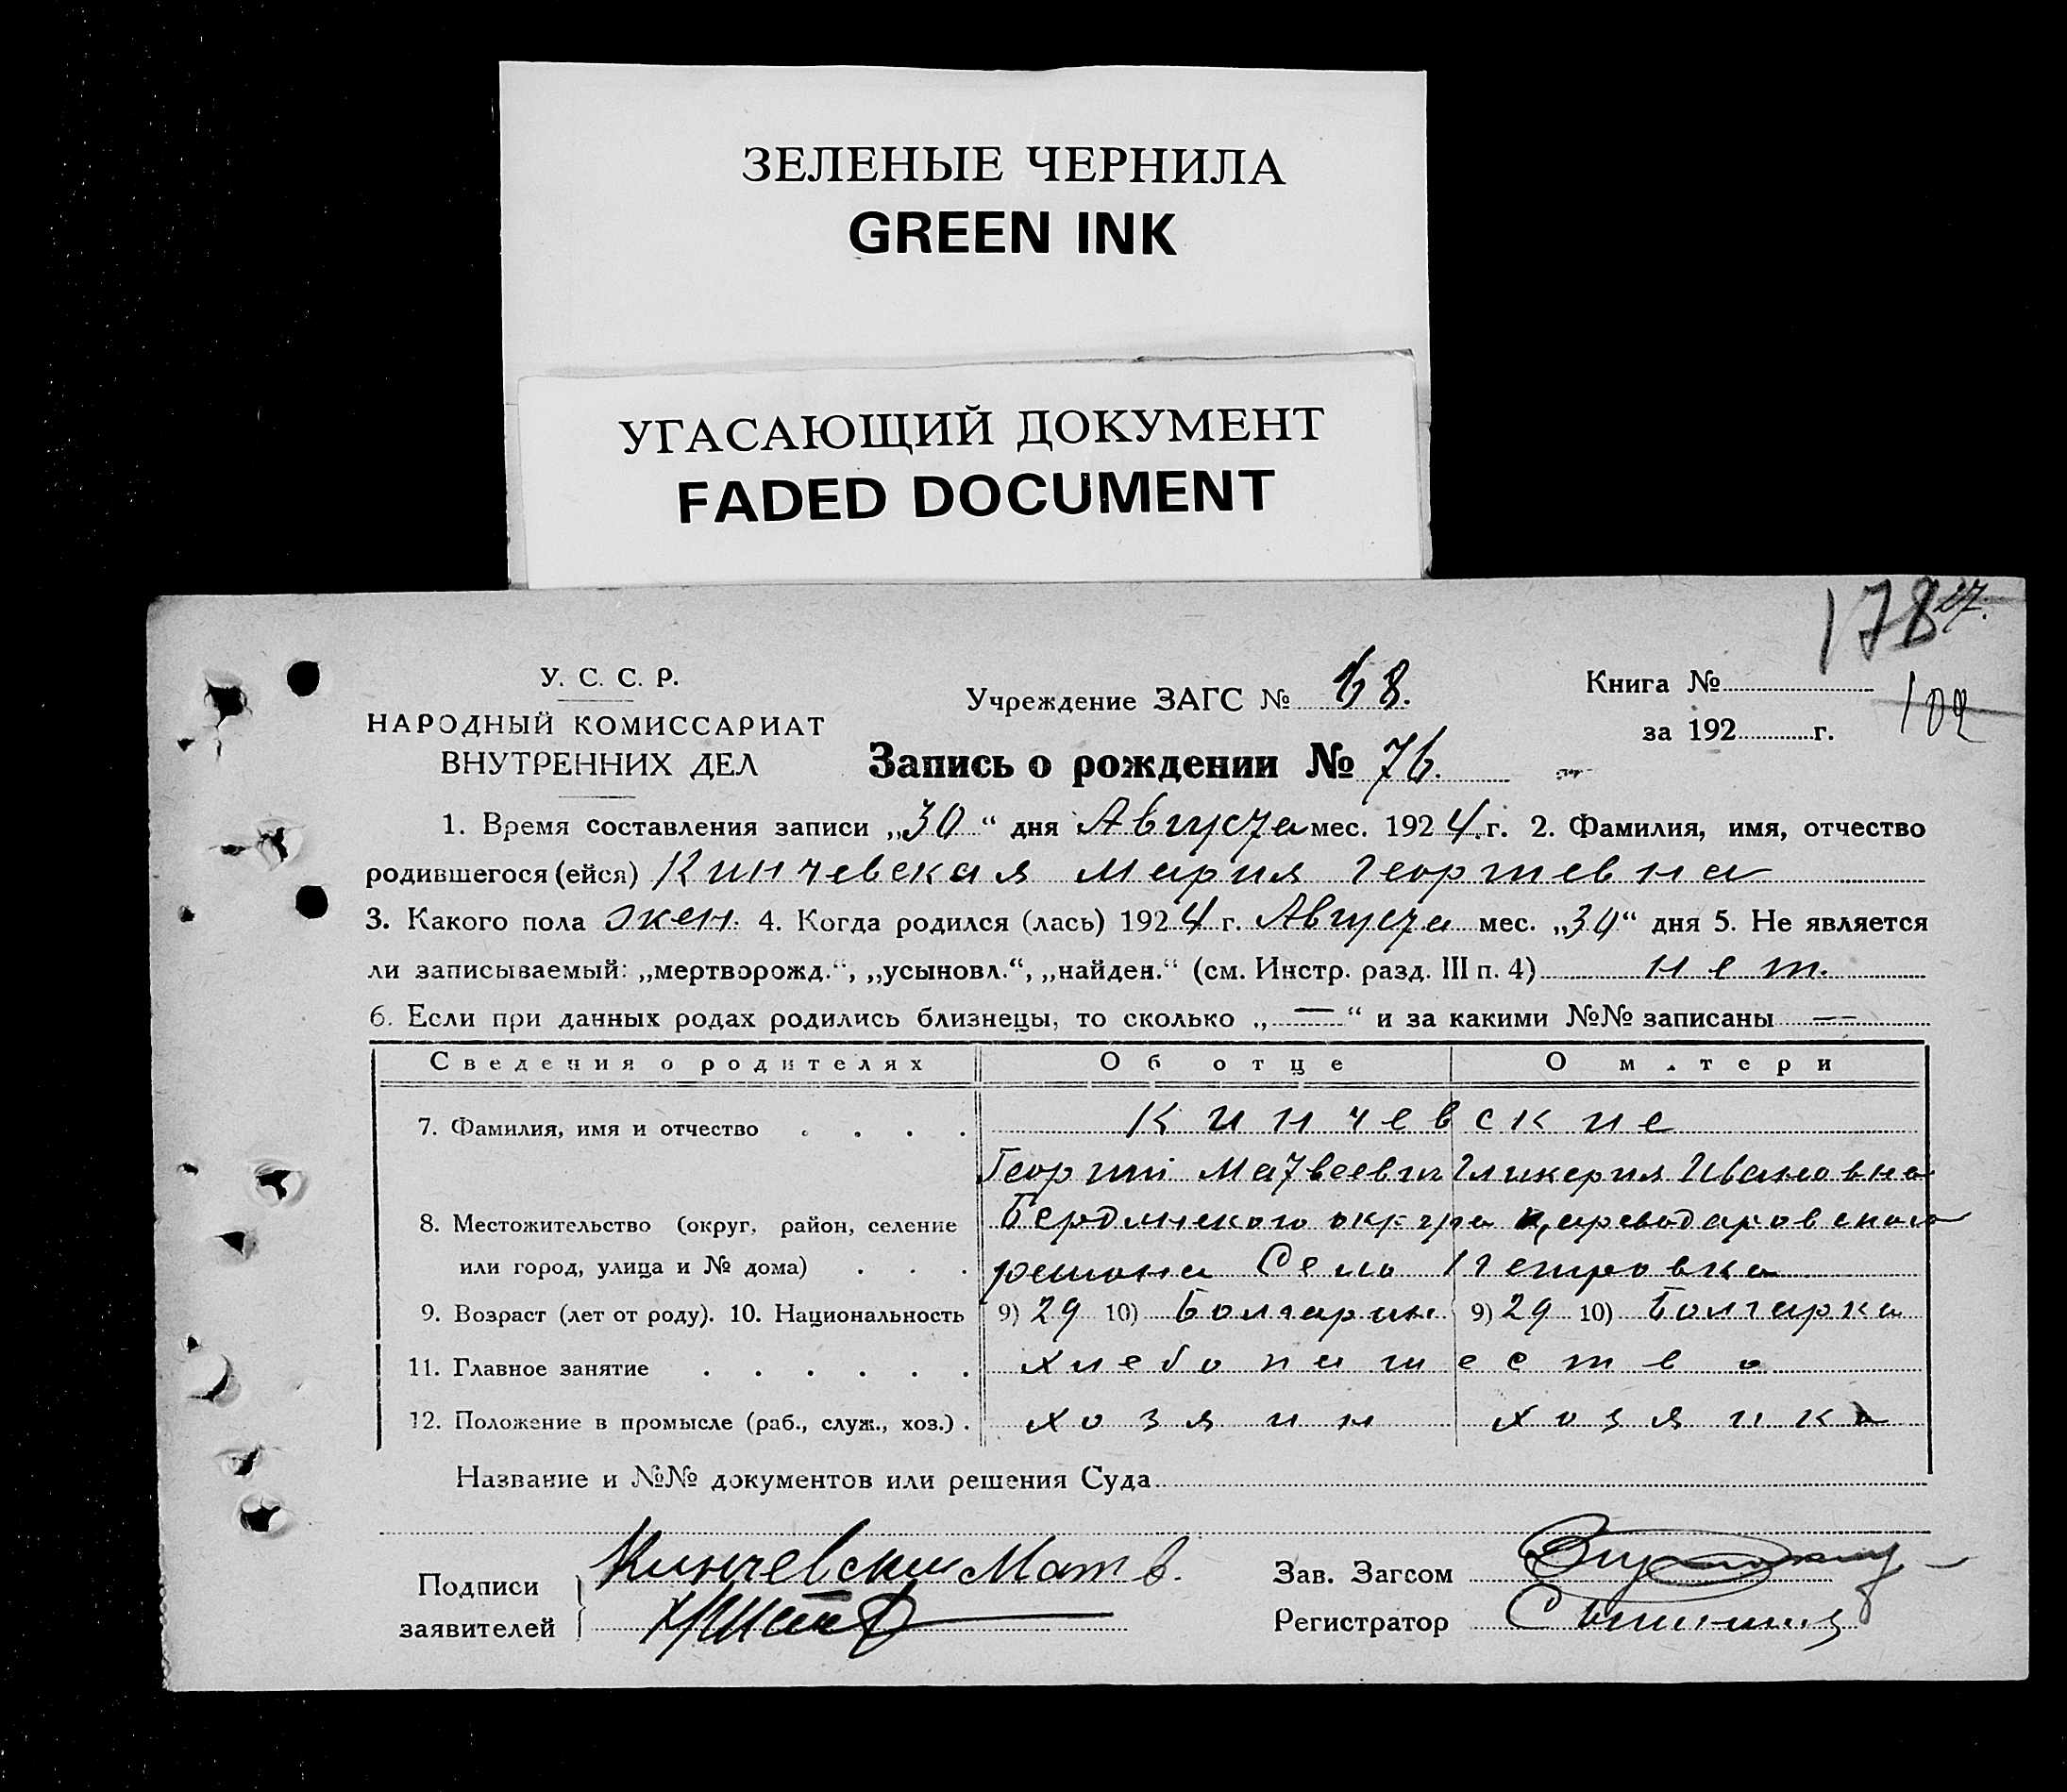 ЗЕЛЕНЫЕ ЧЕРНИЛА
GREEN INK
УГАСАЮЩИЙ ДОКУМЕНТ
FADED DOCUMENT
178 27.
У. С. С. Р.
НАРОДНЫЙ КОМИССАРИАТ
ВНУТРЕННИХ ДЕЛ
Учреждение ЗАГС № 68.
Книга №
за 192 г.
102
Запись о рождении № 76.
1. Время составления записи „30“ дня Августа мес. 1924.г. 2. Фамилия, имя, отчество
родившегося (ейся) Кинчевская Мария Георгиевна
3. Какого пола жен. 4. Когда родился (лась) 1924 г. Августа мес. „30“ дня 5. Не является
ли записываемый: „мертворожд.“, „усыновл.“, „найден.“ (см. Инстр. разд. III п. 4) нет.
6. Если при данных родах родились близнецы, то сколько „—“ и за какими №№ записаны —
Сведения о родителях Об отце О м.тери
7. Фамилия, имя и отчество . . . . Кинчевские
Георгий Матвеевич Гликерия Ивановна
8. Местожительство (округ, район, селение Бердянского округа Цареводаровского
или город, улица и № дома) . . . района Село Петровка
9. Возраст (лет от роду). 10. Национальность 9) 29 10) Болгарин 9) 29 10) Болгарка
11. Главное занятие . . . . . . хлебопашество
12. Положение в промысле (раб., служ., хоз.) . хозяин хозяйка
Название и №№ документов или решения Суда
Подписи
заявителей
Кинчевский Матв.
Зав. Загсом
Регистратор